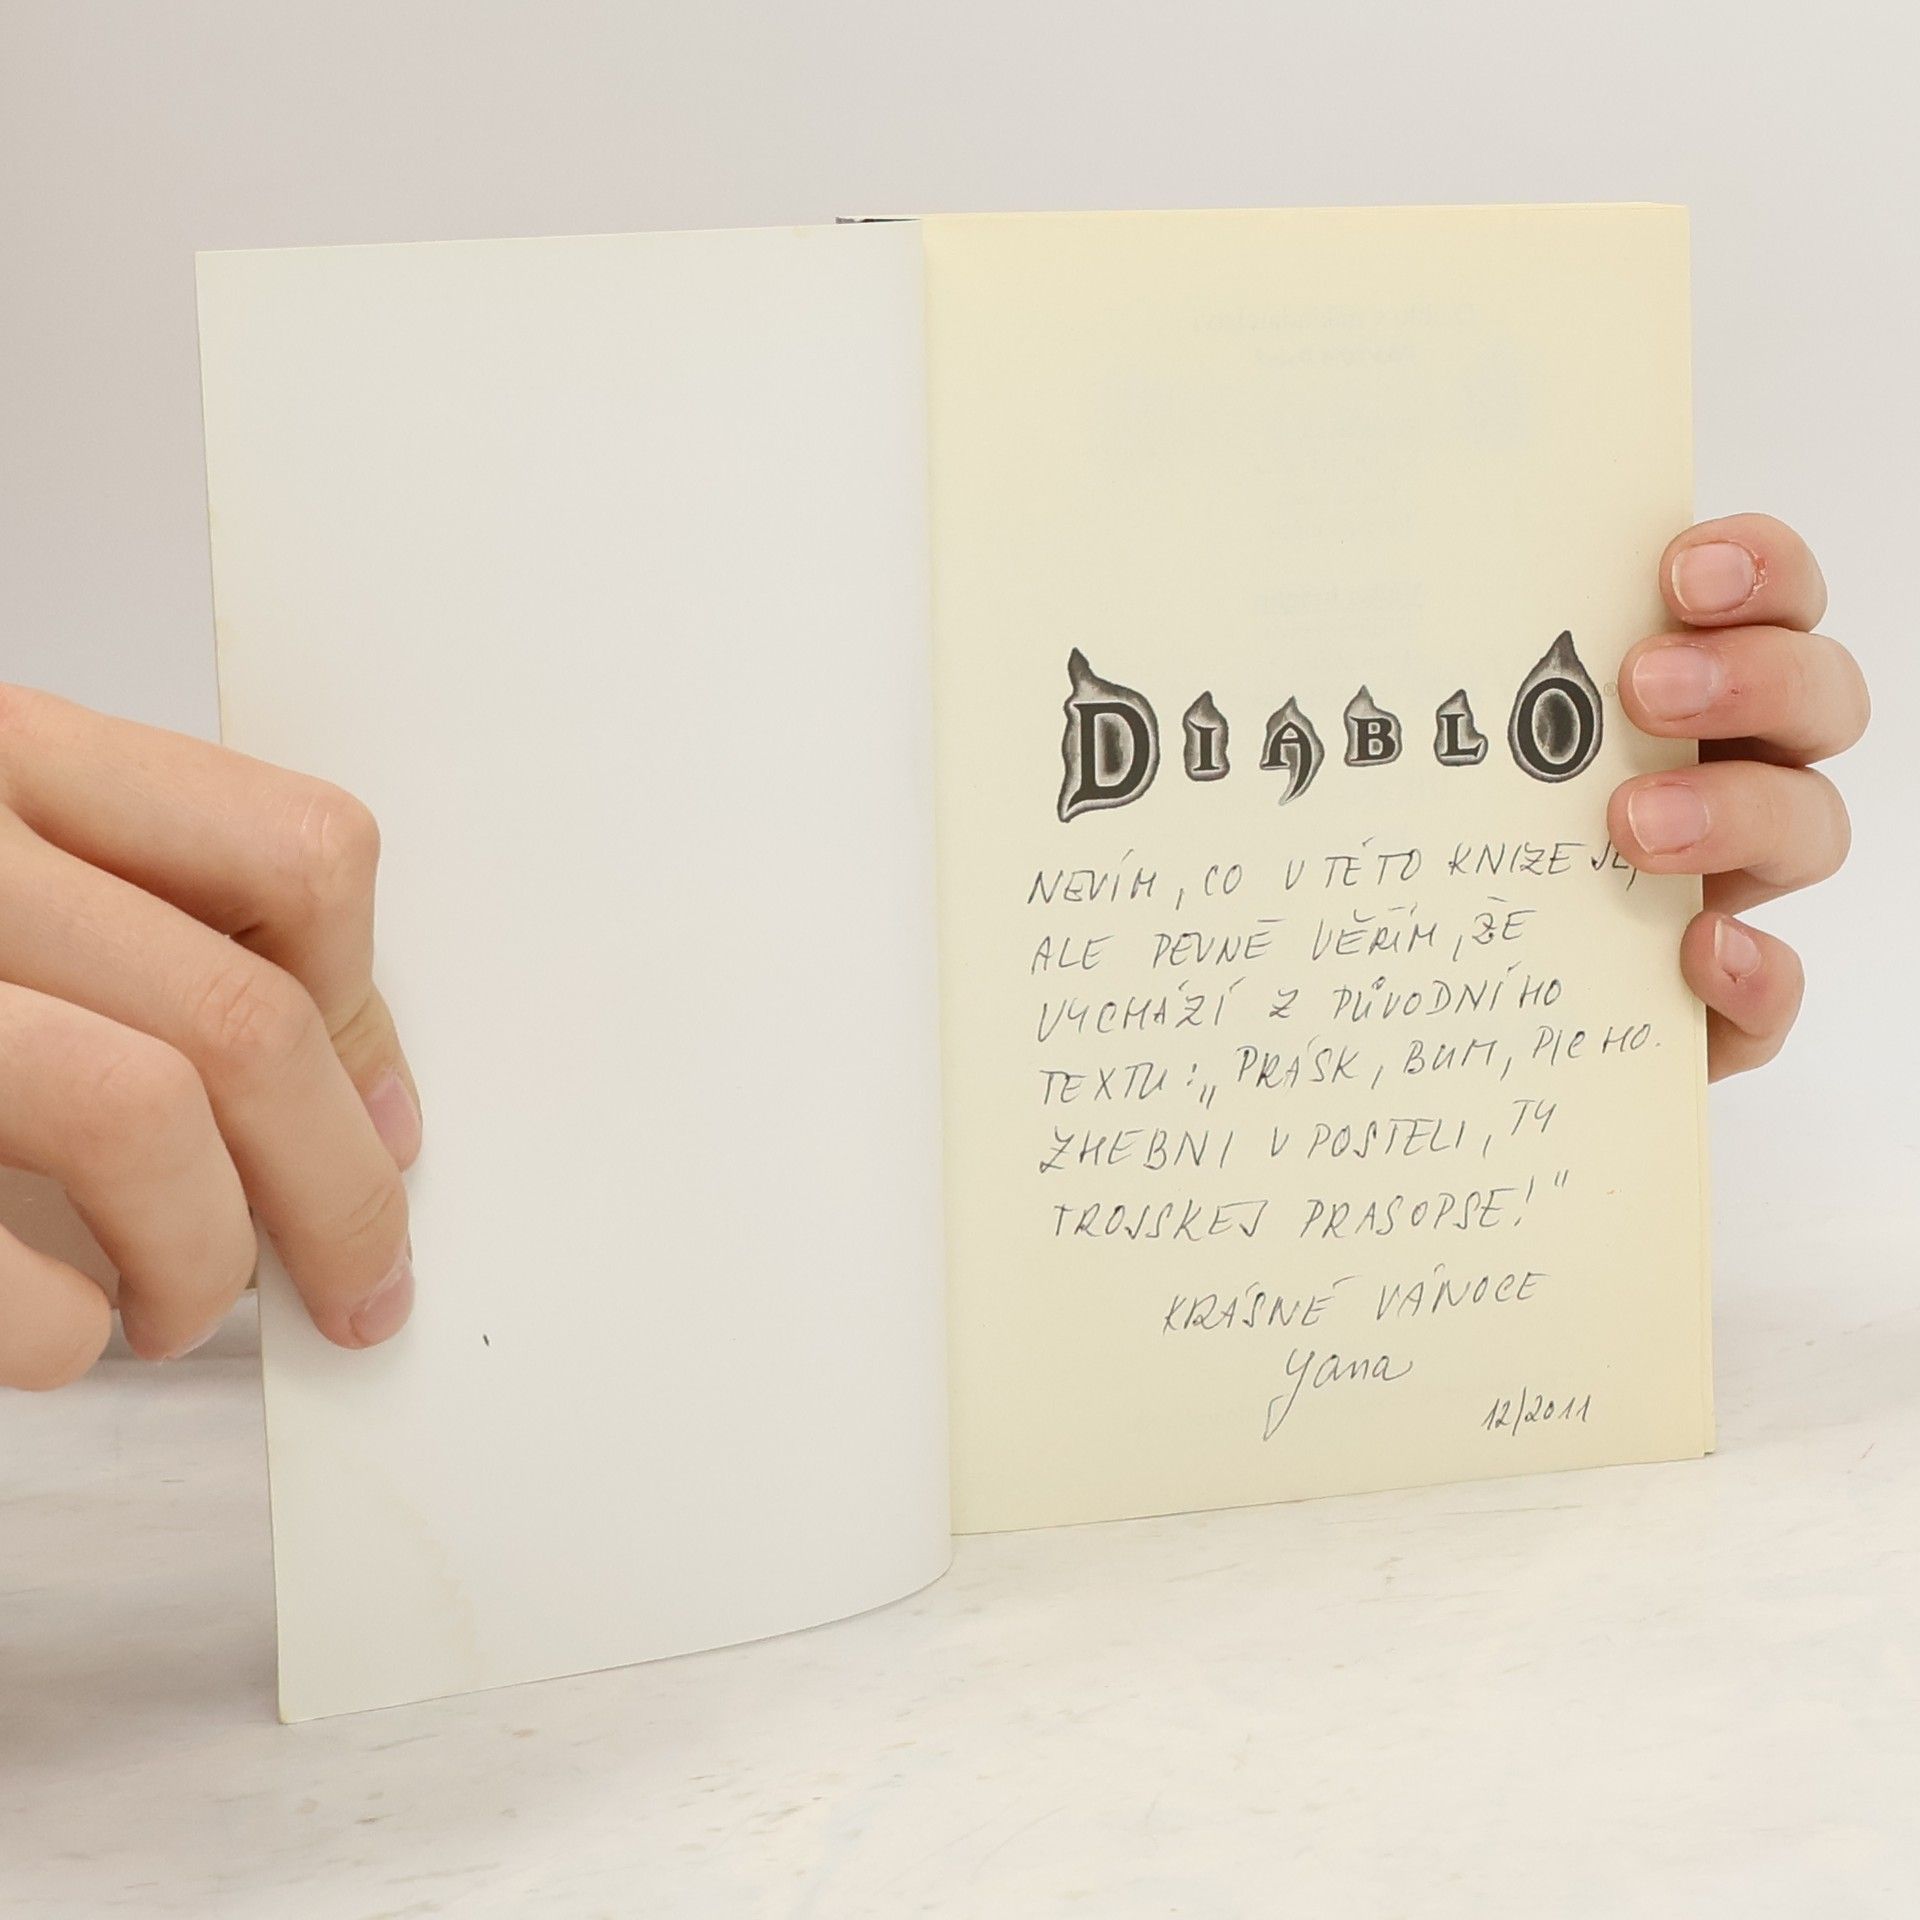 DIABLO
NEVÍM, CO V TÉTO KNIZE JE,
ALE PEVNĚ VĚŘÍM, ŽE
VYCHÁZÍ Z PŮVODNÍHO
TEXTU: „PRÁSK, BUM, PIC HO.
ZHEBNI V POSTELI, TY
TROJSKEJ PRASOPSE!"
KRÁSNÉ VÁNOCE
Yana
12/2011